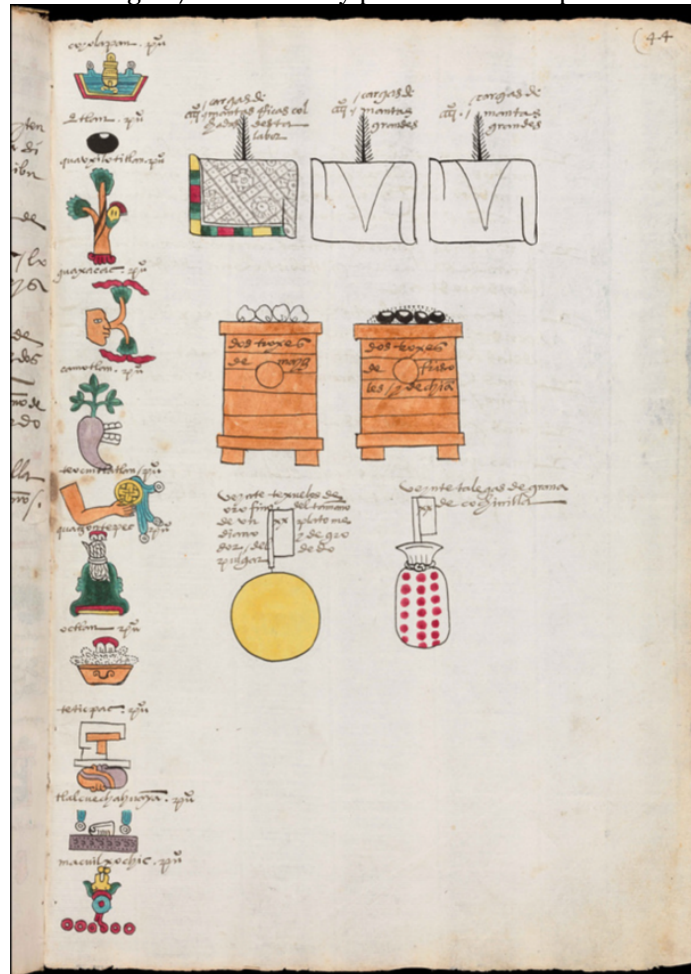 44
coyolapan . pu
etlan . pu
quauxilotitlan . pu
guaxacac . pu
camotlan . pu
teocuitlatlan / pu
quatzontepec . pu
octlan . pu
teticpac . pu
tlalcuechahuaya . pu
macuilxochic . pu
cargas de
mantas ricas col
chadas desta
labor
cargas de
mantas
grandes
cargas de
mantas
grandes
dos troxes
de mayz
dos troxes
de friso
les / de chia
Veynte texuelos de
oro fino del tamaño
de un plato me
diano y de gro
dor / del de do
pulgar
Veynte talegas de grana
de cochinilla
xx
xx